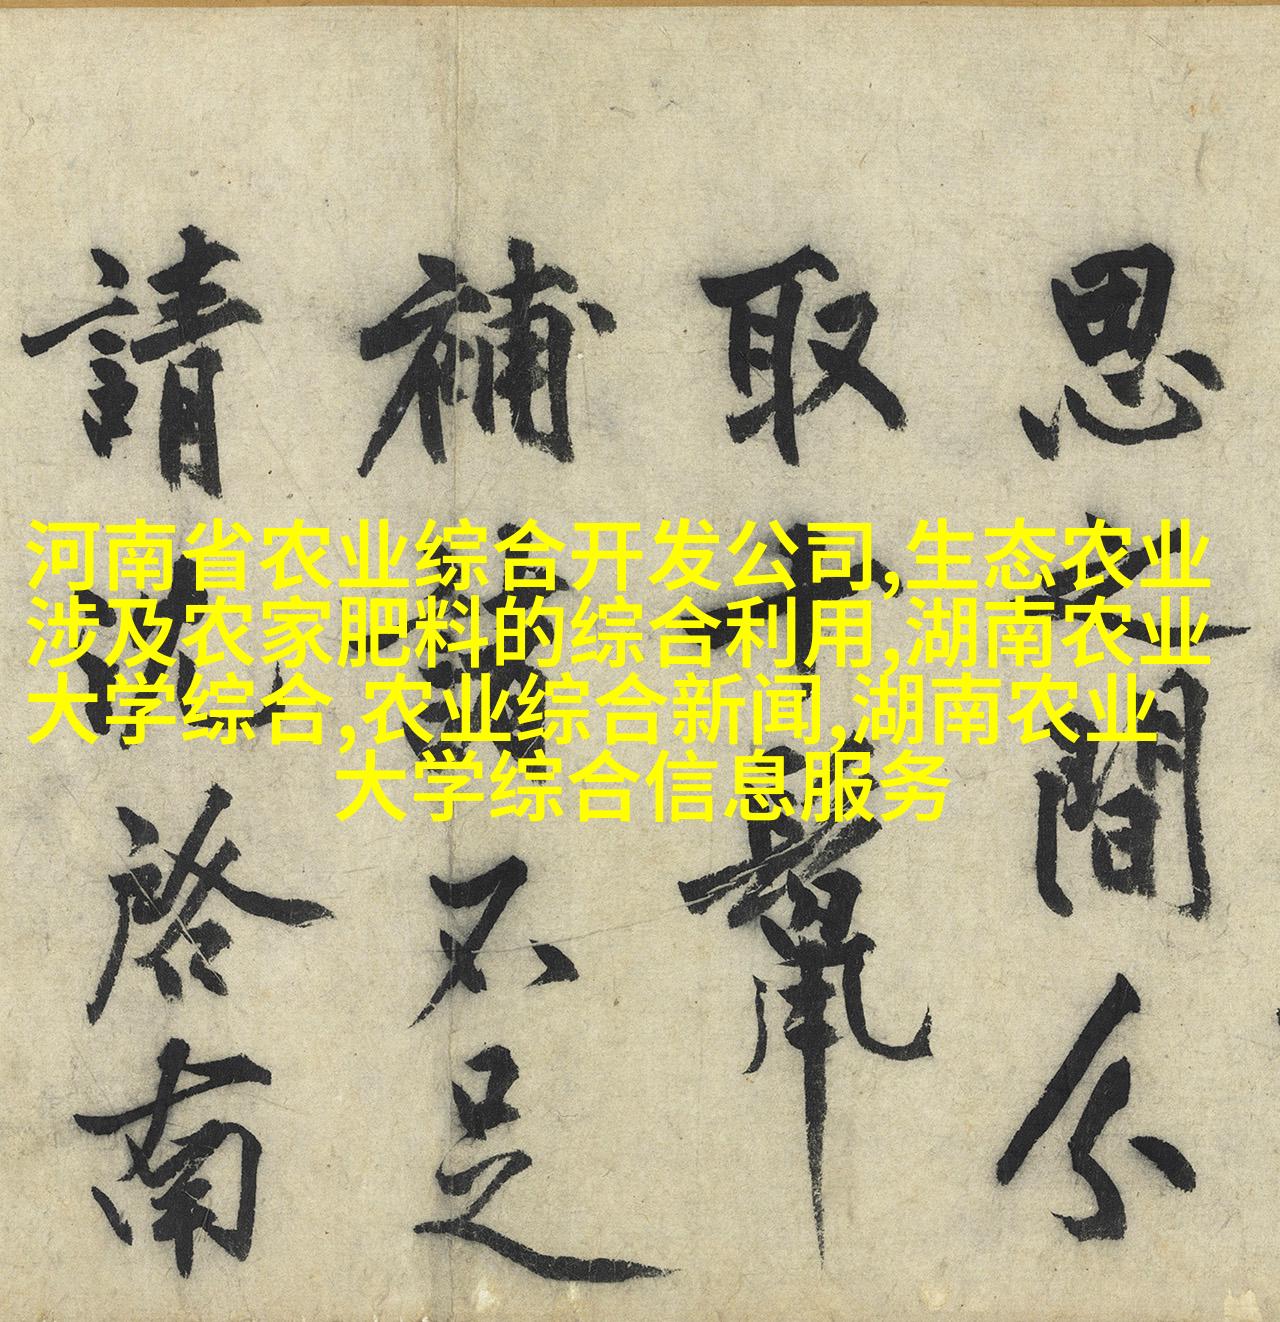 河南省农业综合开发公司,生态农业
涉及农家肥料的综合利用,湖南农业
大学综合,农业综合新闻,湖南农业
大学综合信息服务
思之間分
取十
補不足
請啓南